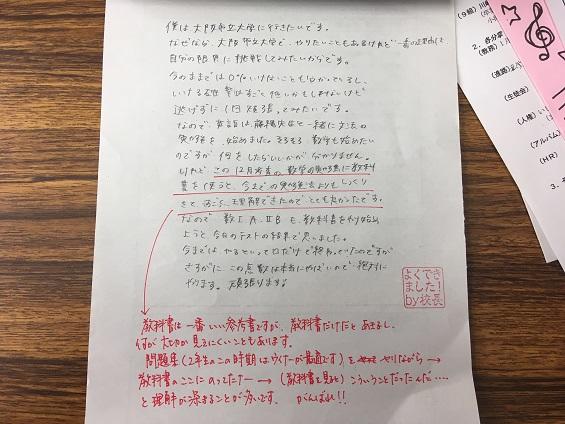 僕は大阪市立大学に行きたいです。
なぜなら、大阪市立大学で、やりたいこともあるけれど一番の理由は、
自分の限界に挑戦してみたいからです。
今のままでは0%いけないことも分かっているし、
いける確率はすごく低いかもしれないけど
逃げずに1回頑張ってみたいです。
なので、英語は、藤橋先生と一緒に文法の
勉強を始めました。そろそろ数学も始めたい
のですが何をしたらいいかが分かりません。
けれど、この12月考査の数学の勉強に教科
書を使うと、今までの勉強法よりもしっくり
きて、すごく、理解できたのでとても良かったです。
なので数ⅠA、ⅡBも教科書をやり始め
ようと今回のテストの結果で思いました。
今まではやるといって口だけで終わっていたのですが
さすがに、この点数は本当にやばいので絶対に
やります。頑張ります
よくでき
ました!
by校長
教科書は一番いい参考書ですが、教科書だけだとあきるし、
何が大切か見えにくいこともあります。
問題集(2年生のこの時期は が最適です)を やりながら→
教科書のここにのってたなー→(教科書を見ると)こういうことだったんだ……
と理解が深まることが多いです。がんばれ!!
(分掌)
2. 各分掌
(教務)
(進路)
(生徒会)
(人権)
(アルバム)
(HR)
3.